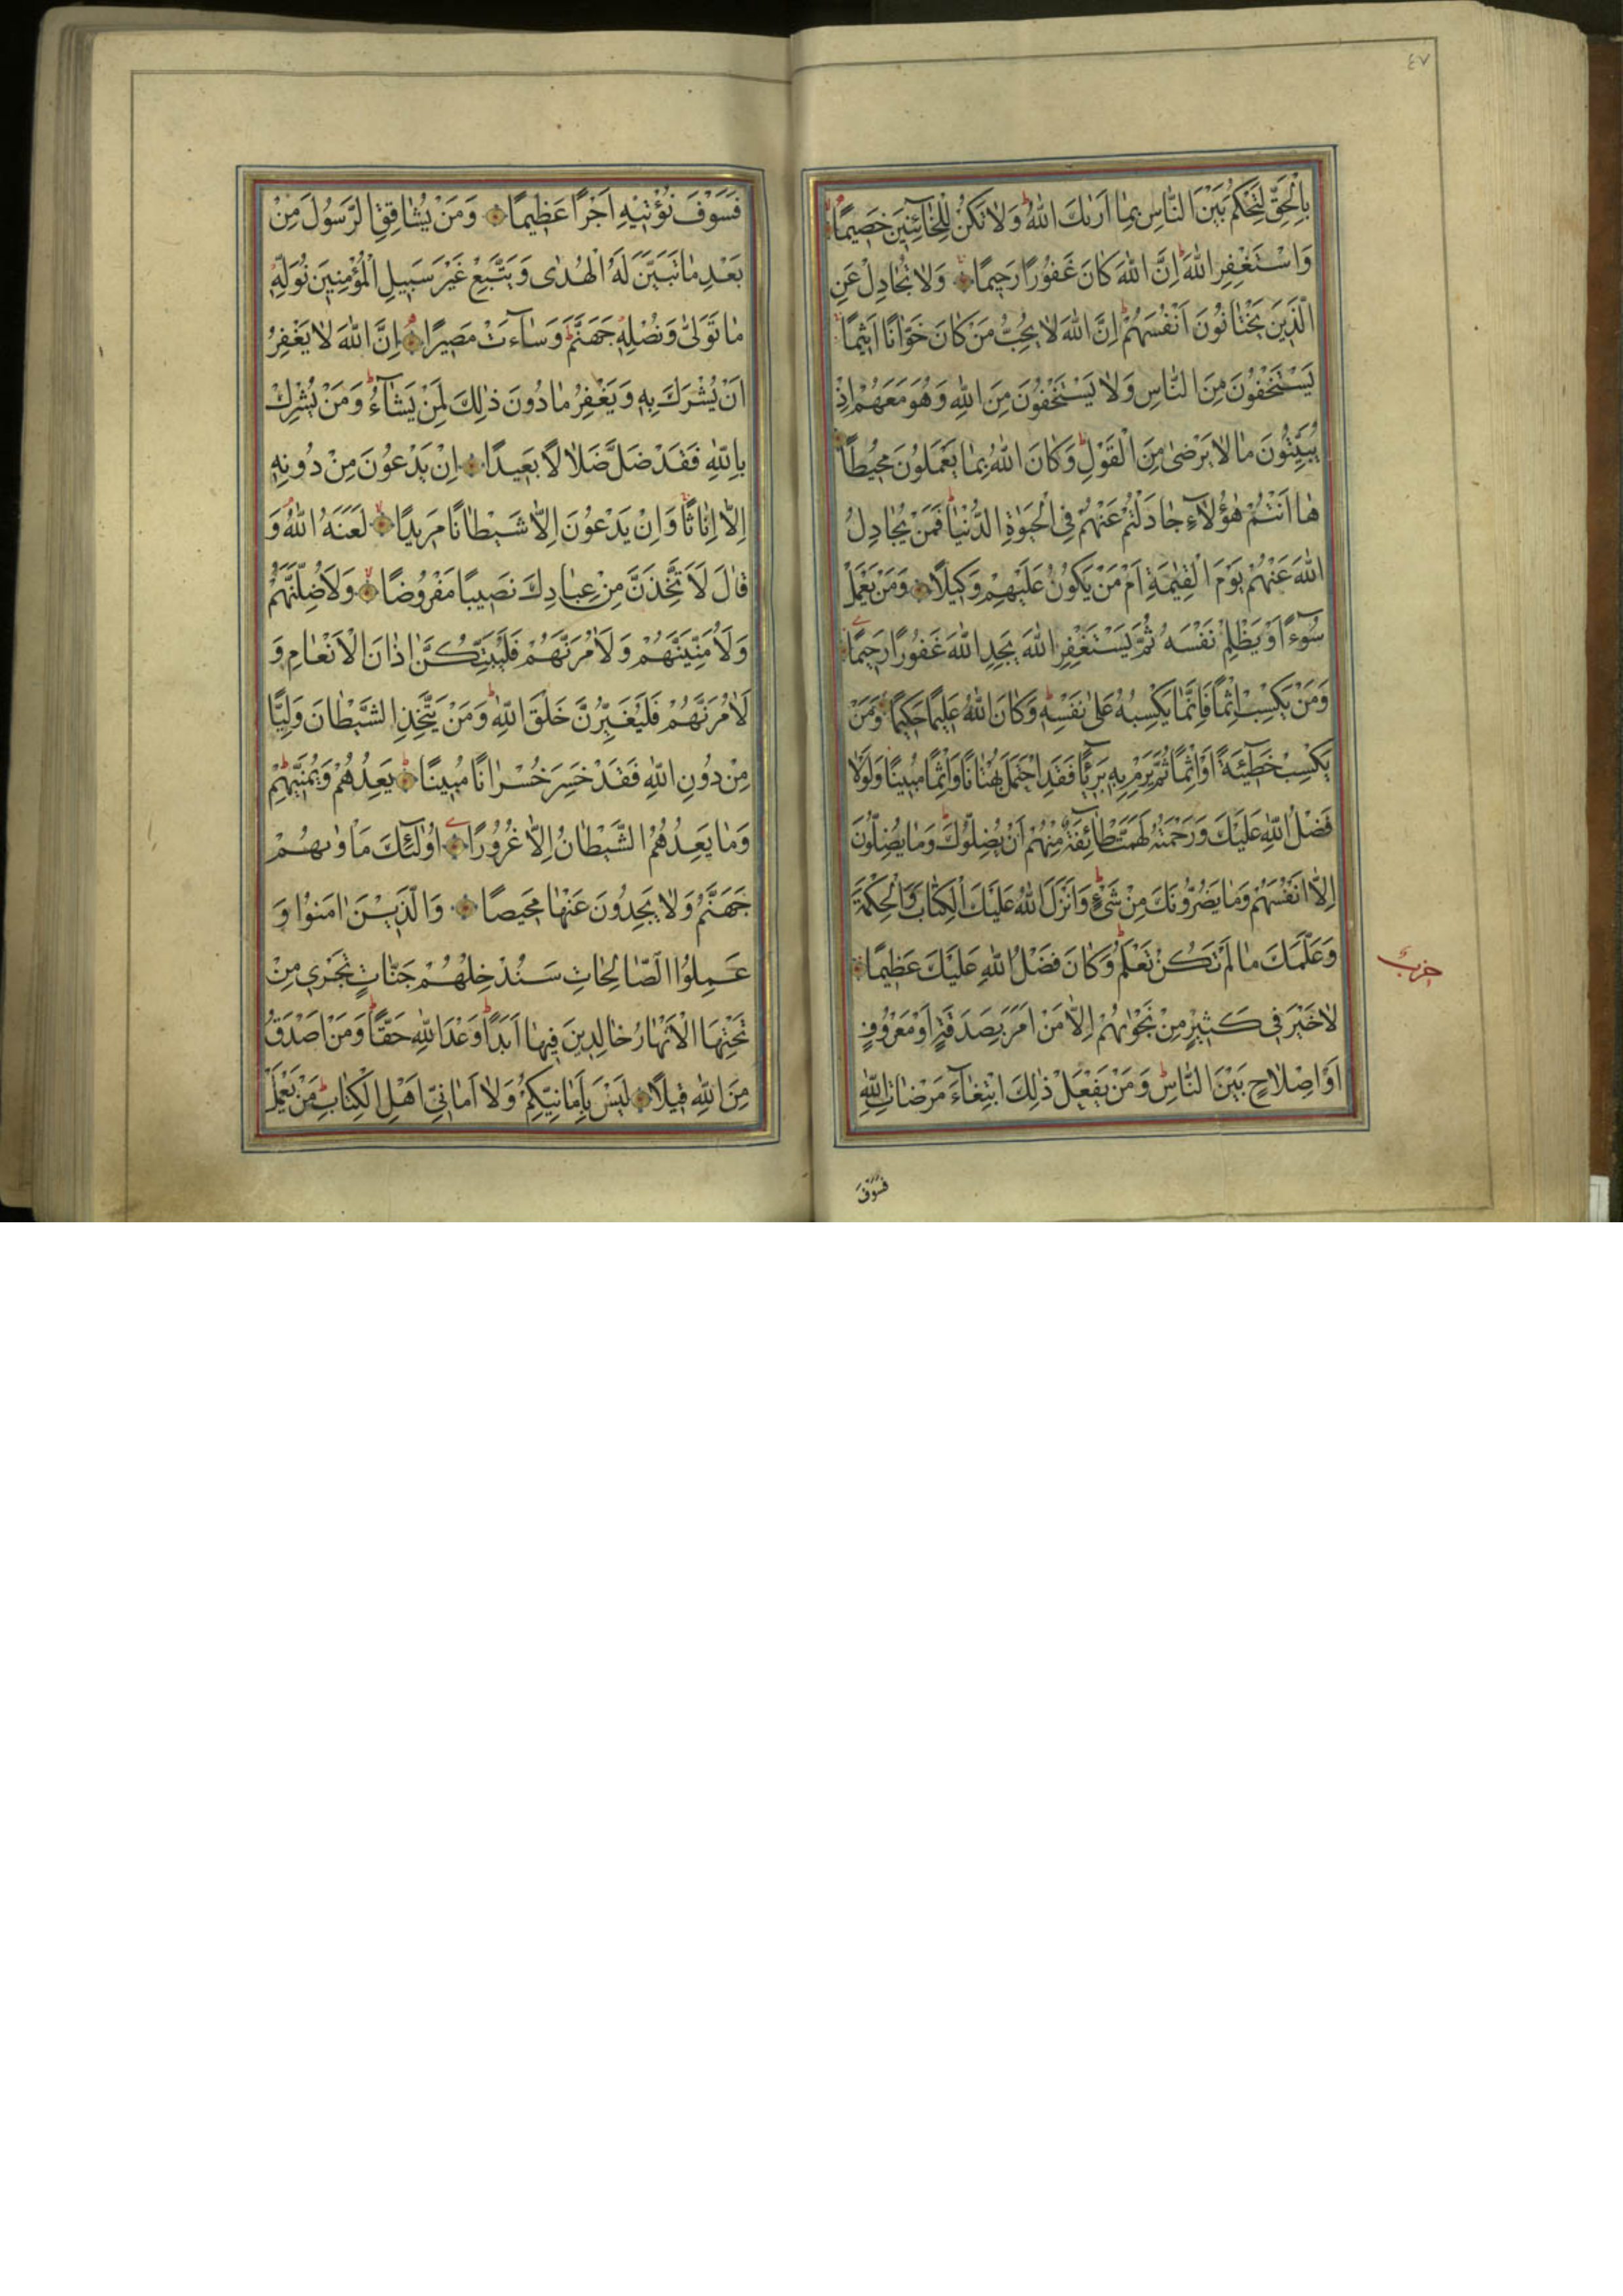 ٤٧
بِالْحَقِّ لِتَحْكُمَ بَيْنَ النَّاسِ بِمَٓا اَرٰيكَ اللّٰهُ ط وَلَا تَكُنْ لِلْخَٓائِنٖينَ خَصٖيمًا
وَاسْتَغْفِرِ اللّٰهَ ط اِنَّ اللّٰهَ كَانَ غَفُورًا رَحٖيمًا وَلَا تُجَادِلْ عَنِ
الَّذٖينَ يَخْتَانُونَ اَنْفُسَهُمْ ط اِنَّ اللّٰهَ لَا يُحِبُّ مَنْ كَانَ خَوَّانًا اَثٖيمًا
يَسْتَخْفُونَ مِنَ النَّاسِ وَلَا يَسْتَخْفُونَ مِنَ اللّٰهِ وَهُوَ مَعَهُمْ اِذْ
يُبَيِّتُونَ مَا لَا يَرْضٰى مِنَ الْقَوْلِ ط وَكَانَ اللّٰهُ بِمَا يَعْمَلُونَ مُحٖيطًا
هَٓا اَنْتُمْ هٰٓؤُلَٓاءِ جَادَلْتُمْ عَنْهُمْ فِي الْحَيٰوةِ الدُّنْيَا فَمَنْ يُجَادِلُ
اللّٰهَ عَنْهُمْ يَوْمَ الْقِيٰمَةِ اَمْ مَنْ يَكُونُ عَلَيْهِمْ وَكٖيلًا وَمَنْ يَعْمَلْ
سُٓوءًا اَوْ يَظْلِمْ نَفْسَهُ ثُمَّ يَسْتَغْفِرِ اللّٰهَ يَجِدِ اللّٰهَ غَفُورًا رَحٖيمًا
وَمَنْ يَكْسِبْ اِثْمًا فَاِنَّمَا يَكْسِبُهُ عَلٰى نَفْسِهٖ ط وَكَانَ اللّٰهُ عَلٖيمًا حَكٖيمًا وَمَنْ
يَكْسِبْ خَطٖٓيئَةً اَوْ اِثْمًا ثُمَّ يَرْمِ بِهٖ بَرٖٓيئًا فَقَدِ احْتَمَلَ بُهْتَانًا وَاِثْمًا مُبٖينًا وَلَوْلَا
فَضْلُ اللّٰهِ عَلَيْكَ وَرَحْمَتُهُ لَهَمَّتْ طَٓائِفَةٌ مِنْهُمْ اَنْ يُضِلُّوكَ ط وَمَا يُضِلُّونَ
اِلَّٓا اَنْفُسَهُمْ وَمَا يَضُرُّونَكَ مِنْ شَيْءٍ ط وَاَنْزَلَ اللّٰهُ عَلَيْكَ الْكِتَابَ وَالْحِكْمَةَ
وَعَلَّمَكَ مَا لَمْ تَكُنْ تَعْلَمُ ط وَكَانَ فَضْلُ اللّٰهِ عَلَيْكَ عَظٖيمًا
حزب
لَا خَيْرَ فٖي كَثٖيرٍ مِنْ نَجْوٰيهُمْ اِلَّا مَنْ اَمَرَ بِصَدَقَةٍ اَوْ مَعْرُوفٍ
اَوْ اِصْلَاحٍ بَيْنَ النَّاسِ ط وَمَنْ يَفْعَلْ ذٰلِكَ ابْتِغَٓاءَ مَرْضَاتِ اللّٰهِ
فَسَوْفَ
فَسَوْفَ نُؤْتٖيهِ اَجْرًا عَظٖيمًا وَمَنْ يُشَاقِقِ الرَّسُولَ مِنْ
بَعْدِ مَا تَبَيَّنَ لَهُ الْهُدٰى وَيَتَّبِعْ غَيْرَ سَبٖيلِ الْمُؤْمِنٖينَ نُوَلِّهٖ
مَا تَوَلّٰى وَنُصْلِهٖ جَهَنَّمَ ط وَسَٓاءَتْ مَصٖيرًا اِنَّ اللّٰهَ لَا يَغْفِرُ
اَنْ يُشْرَكَ بِهٖ وَيَغْفِرُ مَا دُونَ ذٰلِكَ لِمَنْ يَشَٓاءُ ط وَمَنْ يُشْرِكْ
بِاللّٰهِ فَقَدْ ضَلَّ ضَلَالًا بَعٖيدًا اِنْ يَدْعُونَ مِنْ دُونِهٖ
اِلَّٓا اِنَاثًا وَاِنْ يَدْعُونَ اِلَّا شَيْطَانًا مَرٖيدًا لَعَنَهُ اللّٰهُ وَ
قَالَ لَاَتَّخِذَنَّ مِنْ عِبَادِكَ نَصٖيبًا مَفْرُوضًا وَلَاُضِلَّنَّهُمْ
وَلَاُمَنِّيَنَّهُمْ وَلَاٰمُرَنَّهُمْ فَلَيُبَتِّكُنَّ اٰذَانَ الْاَنْعَامِ وَ
لَاٰمُرَنَّهُمْ فَلَيُغَيِّرُنَّ خَلْقَ اللّٰهِ ط وَمَنْ يَتَّخِذِ الشَّيْطَانَ وَلِيًّا
مِنْ دُونِ اللّٰهِ فَقَدْ خَسِرَ خُسْرَانًا مُبٖينًا يَعِدُهُمْ وَيُمَنّٖيهِمْ ط
وَمَا يَعِدُهُمُ الشَّيْطَانُ اِلَّا غُرُورًا اُولٰٓئِكَ مَاْوٰيهُمْ
جَهَنَّمُ وَلَا يَجِدُونَ عَنْهَا مَحٖيصًا وَالَّذٖينَ اٰمَنُوا وَ
عَمِلُوا الصَّالِحَاتِ سَنُدْخِلُهُمْ جَنَّاتٍ تَجْرٖي مِنْ
تَحْتِهَا الْاَنْهَارُ خَالِدٖينَ فٖيهَٓا اَبَدًا ط وَعْدَ اللّٰهِ حَقًّا ط وَمَنْ اَصْدَقُ
مِنَ اللّٰهِ قٖيلًا لَيْسَ بِاَمَانِيِّكُمْ وَلَٓا اَمَانِيِّ اَهْلِ الْكِتَابِ ط مَنْ يَعْمَلْ